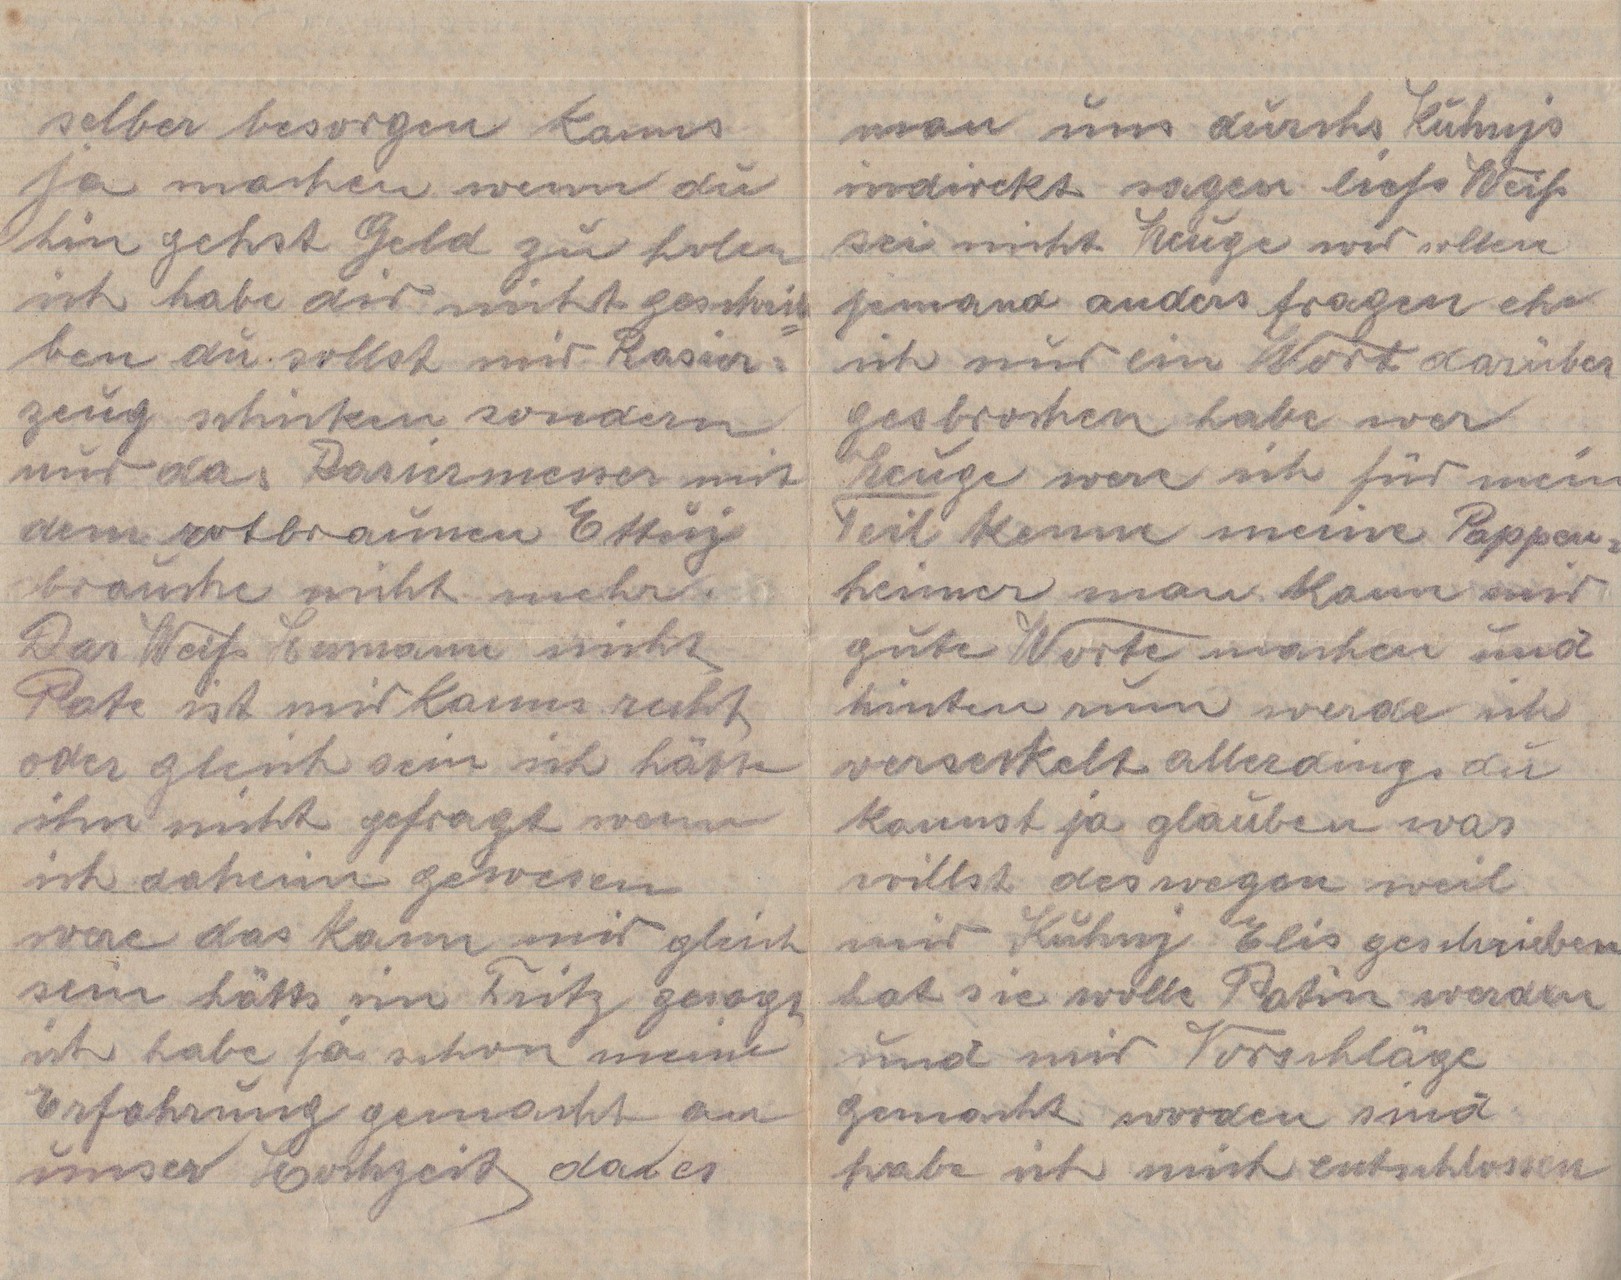 selber besorgen kanns
ja machen wenn du
hin gehst Geld zu holen
ich habe dir nicht geschrie=
ben du sollst mir Rasier=
zeug schicken sondern
nur das Rasiermesser mit
dem rotbraunen Ettuj
brauche nicht mehr.
Das Weiß Hermann nicht
Pate ist mir kanns recht
oder gleich sein ich hätte
ihn nicht gefragt wenn
ich daheim gewesen
were das kann mir gleich
sein hätts im Fritz gesagt
ich habe ja schon meine
Erfahrung gemacht an
unser Hochzeit das es
man uns durchs Kuhnjs
indirekt sagen ließ Weiß
sei nicht Zeuge wir sollen
jemand anders fragen ehe
ich nur ein Wort darüber
gesbrochen habe wer
Zeuge were ich für mein
Teil kenne meine Pappen=
heimer man kann mir
gute Worte machen und
hinten rum werde ich
verseckelt allerdings du
kannst ja glauben was
willst deswegen weil
mir Kuhnj Elis geschrieben
hat sie wolle Patin werden
und mir Vorschläge
gemacht worden sind
habe ich mich entschlossen